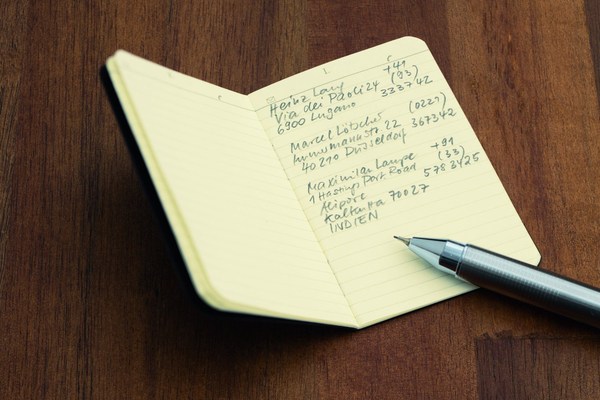 L
Heinz Lang +41
Via dei Paoli 24 (93)
6900 Lugano 333742
Marcel Lötscher (0221)
Immermannstr. 22 367342
40210 Düsseldorf
Maximilan Lampe +91
1 Hastings Port Road (33)
Alipore 5783425
Kalkutta 70027
INDIEN